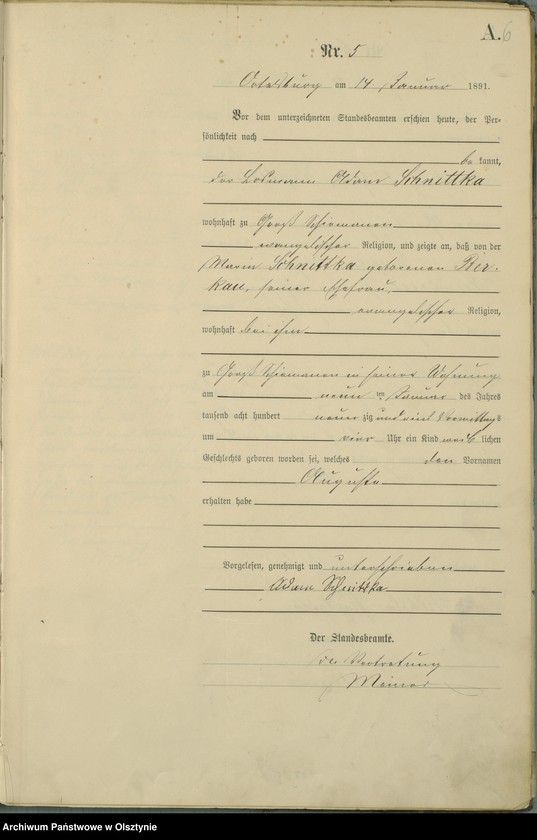 A. 6
Nr. 5
Ortelsburg am 14 Januar 1891.
Vor dem unterzeichneten Standesbeamten erschien heute, der Per-
sönlichkeit nach
be kannt,
der Losmann Adam Schnittka
wohnhaft zu Forst Schiemanen
evangelischer Religion, und zeigte an, daß von der
Marie Schnittka geborenen Bier-
kau, seiner Ehefrau,
evangelischer Religion,
wohnhaft bei ihm
zu Forst Schiemanen in seiner Wohnung
am neun ten Januar des Jahres
tausend acht hundert neun zig und eins Vormittags
um vier Uhr ein Kind weib lichen
Geschlechts geboren worden sei, welches den Vornamen
Auguste
erhalten habe
Vorgelesen, genehmigt und unterschrieben
Adam Schnittka
Der Standesbeamte.
Vertretung
Archiwum Państwowe w Olsztynie